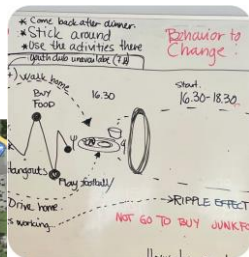 * Come back after dinner.
* Stick around
* Use the activities there
youth club unavailable
Behavior to
Change:
walk home
BUY
FOOD
16.30
Start.
16.30-18.30
Hangouts
Play football/
Drive home.
→RIPPLE EFFECT
s working...
NOT GO TO BUY JUNKFO